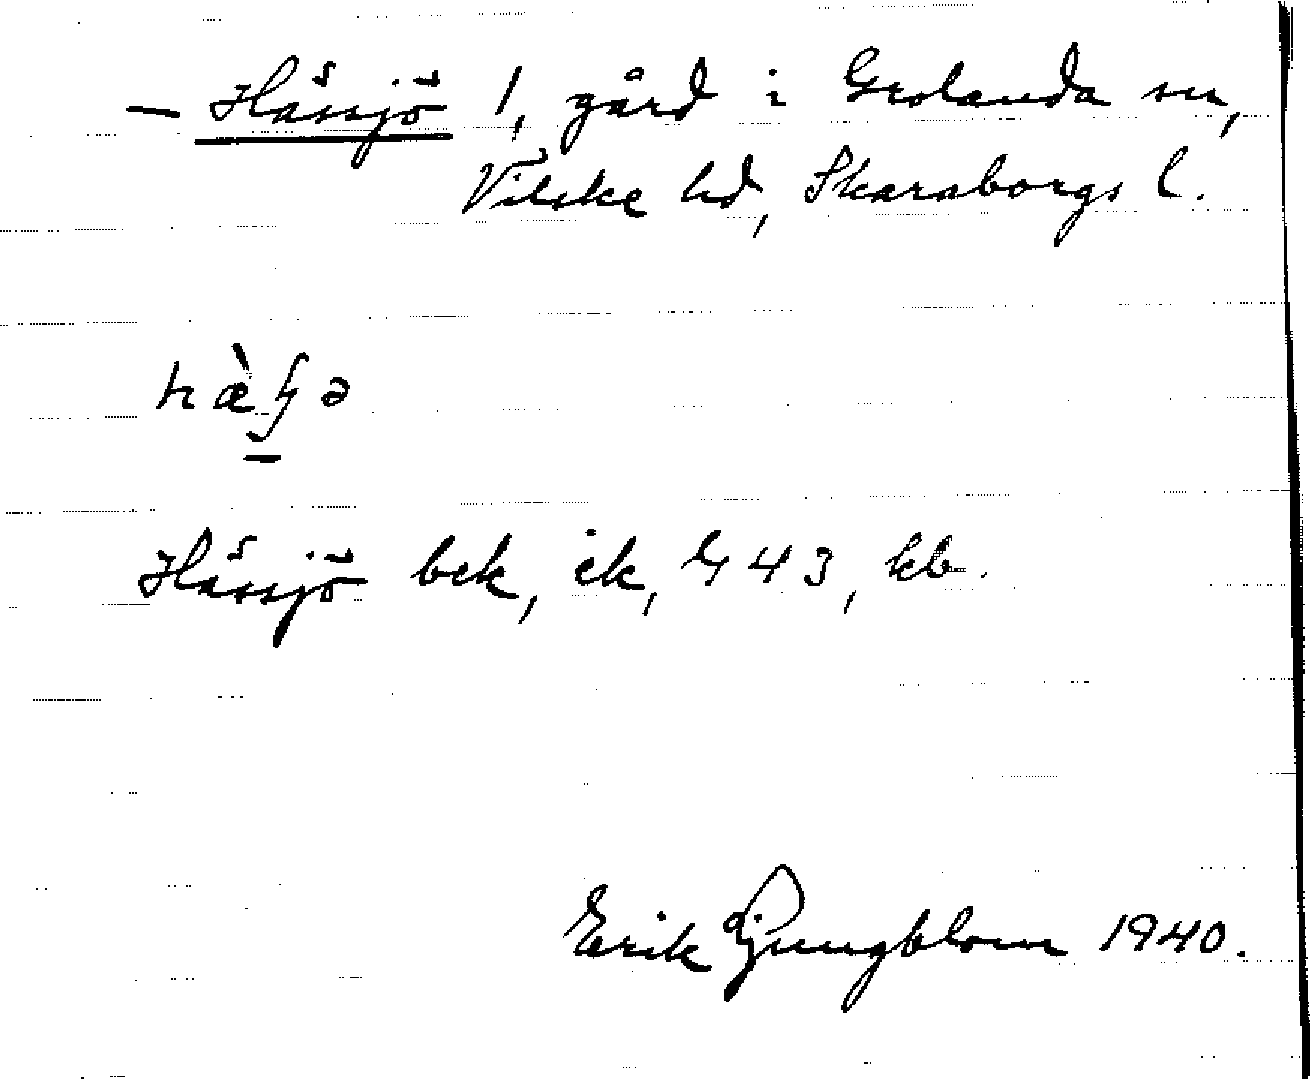 — Hässjö 1, gård i Grolanda sn,
Vilske hd, Skaraborgs l.
Hässjö bek, ek, G 43, kb.
Erik Ljungblom 1940.